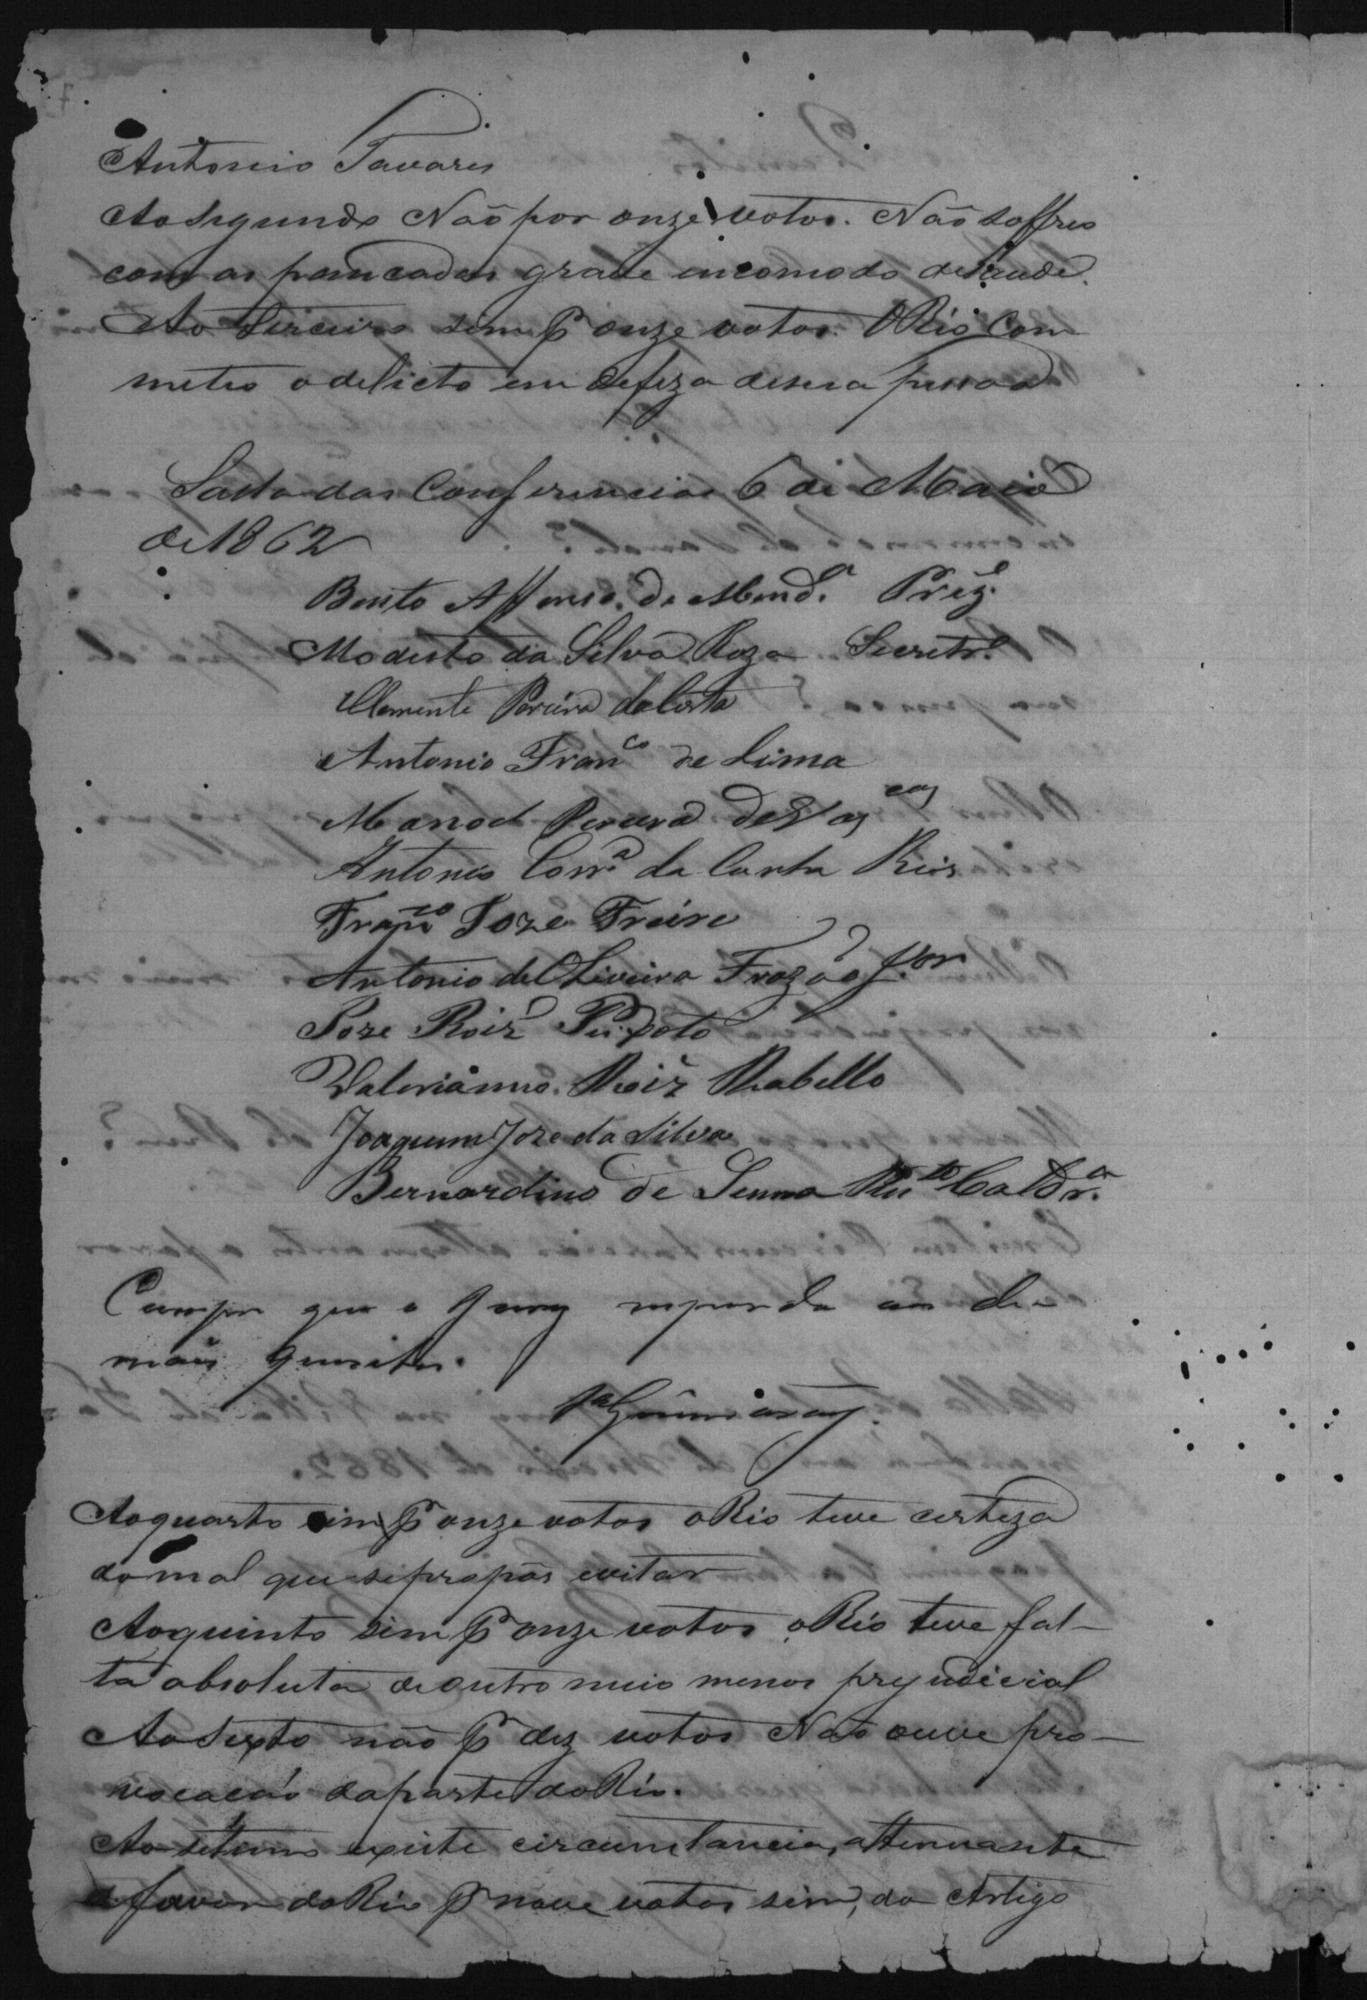 Antonio Tavares
Ao segundo Não por onze votos. Não soffreo
com as pancadas grave incomodo de saude.
Ao terceiro sim p onze votos. O Réo Com
meteo o delicto em defeza de sua pessoa
Salla das Conferencias 6 de Maio
de 1862
Bento Affonso de Mend.ª Prez.e
Modesto da Silva Roza Secretr.o
Clemente Pereira da Costa
Antonio Fran.co de Lima
Manoel Pereira de Vas.cos
Antonio Corr.a da Cunha Reis
Fran.co Joze Freire
Antonio de Oliveira Frazão
Joze Roiz Peixoto
Valerianno Roiz Rabello
Joaquim Joze da Silva
Bernardino de Senna Cald.ra
Cumpre que o Jury responda aos de-
mais quesitos.
Guimarães
Ao quarto sim p onze votos o Réo teve certeza
do mal que se propôs evitar
Ao quinto sim p onze votos o Réo teve fal-
ta absoluta de outro meio menos prejudicial
Ao sexto não p dez votos Não ouve pro-
vocacão da parte do Réo.
Ao setimo existe circumstancia attenuante
a favor do Réo p nove votos sim, do Artigo